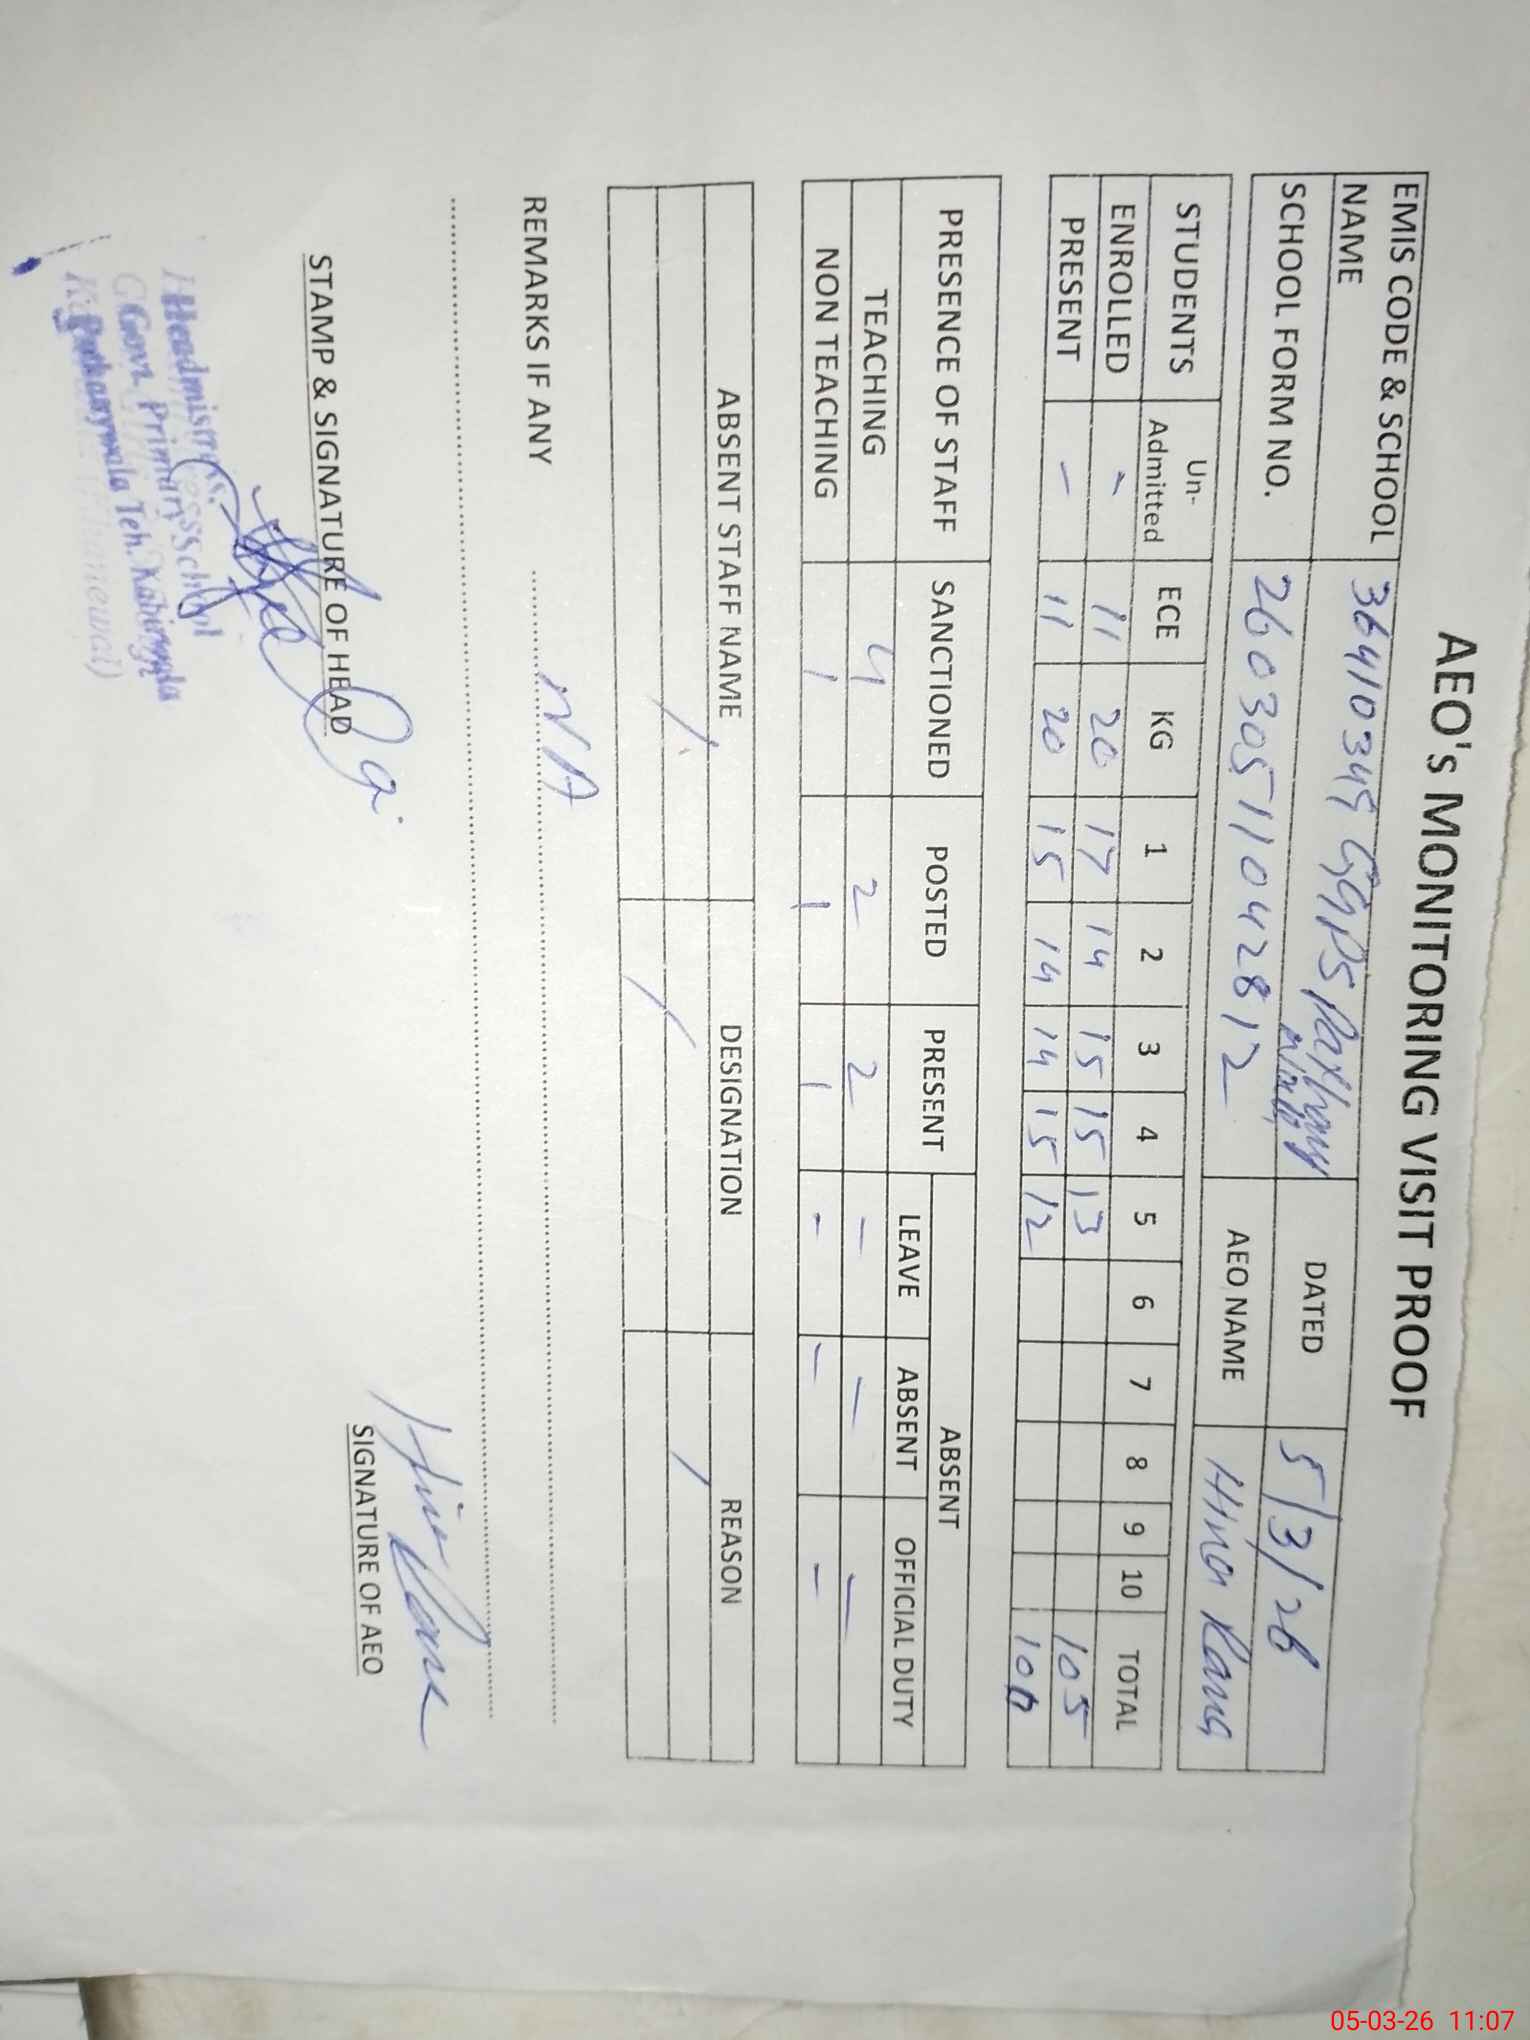 AEO's MONITORING VISIT PROOF
EMIS CODE & SCHOOL NAME 36410349 GGPS Pathany wala DATED 5/3/26
SCHOOL FORM NO. 26030511042812 AEO NAME Hina Rana
STUDENTS Un-Admitted ECE KG 1 2 3 4 5 6 7 8 9 10 TOTAL
ENROLLED - 11 20 17 14 15 15 13 105
PRESENT - 11 20 15 14 14 15 12 10
PRESENCE OF STAFF SANCTIONED POSTED PRESENT ABSENT
LEAVE ABSENT OFFICIAL DUTY
TEACHING 4 2 2 - - -
NON TEACHING 1 1 1 - - -
ABSENT STAFF NAME DESIGNATION REASON
/ / /
REMARKS IF ANY N/A
STAMP & SIGNATURE OF HEAD
Headmistress
Govt. Primary School
Pathanywala Teh. Kabirwala
Hina Rana
SIGNATURE OF AEO
05-03-26 11:07